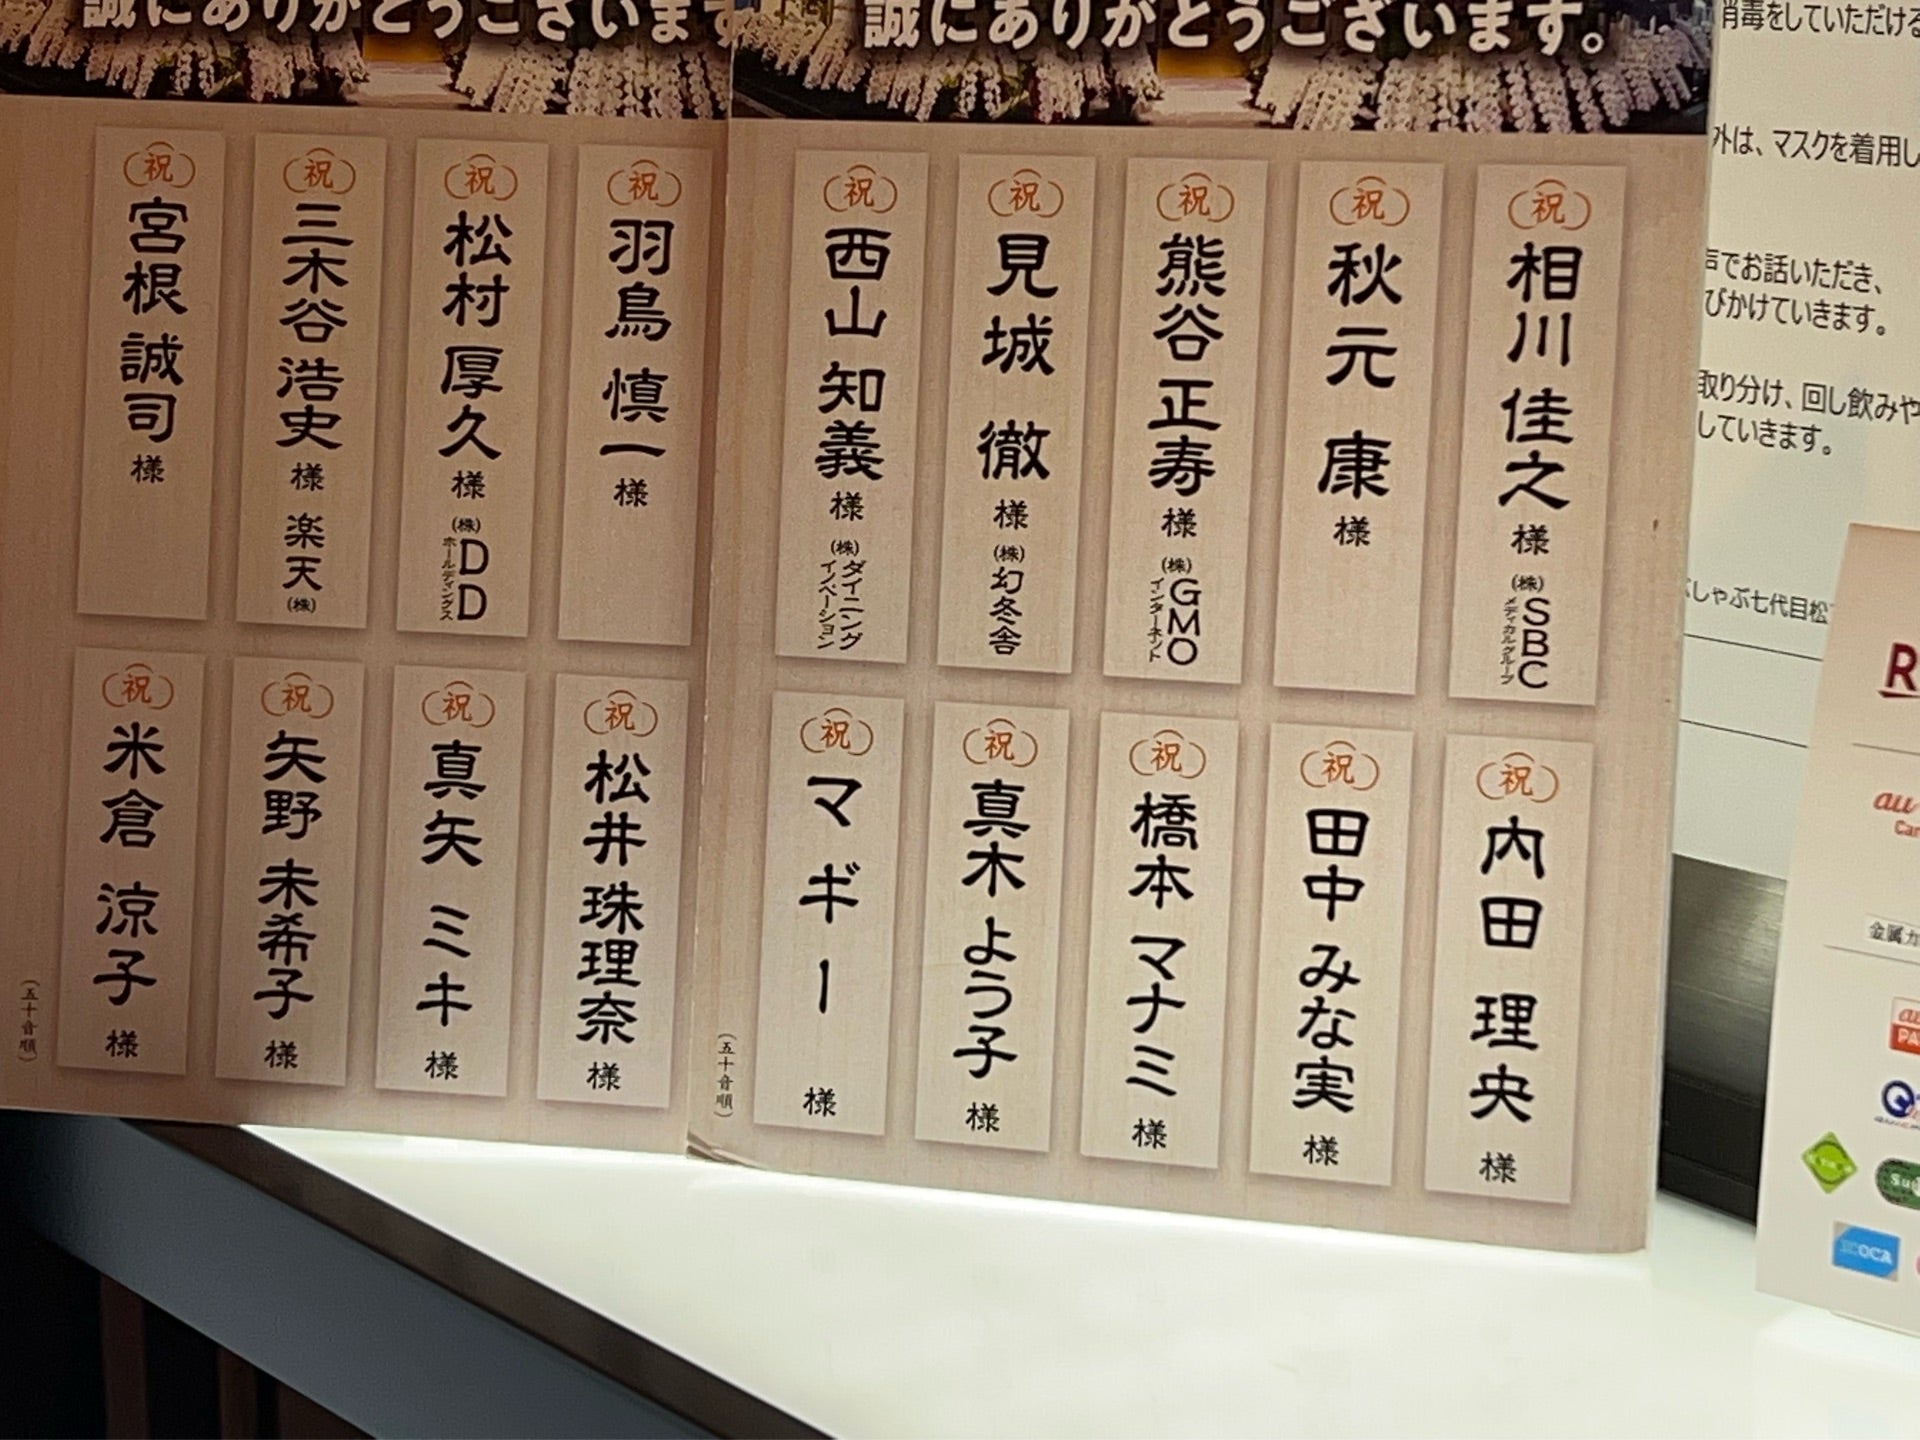 誠にありがとうございます
祝 宮根 誠司 様
祝 三木谷 浩史 様 楽天(株)
祝 松村 厚久 様 (株)DDホールディングス
祝 羽鳥 慎一 様
祝 米倉 涼子 様
祝 矢野 未希子 様
祝 真矢 ミキ 様
祝 松井 珠理奈 様
(五十音順)
誠にありがとうございます。
祝 西山 知義 様 (株)ダイニングイノベーション
祝 見城 徹 様 (株)幻冬舎
祝 熊谷 正寿 様 (株)GMOインターネット
祝 秋元 康 様
祝 相川 佳之 様 (株)SBCメディカルグループ
祝 マギー 様
祝 真木 よう子 様
祝 橋本 マナミ 様
祝 田中 みな実 様
祝 内田 理央 様
(五十音順)
消毒をしていただける
外は、マスクを着用し
声でお話いただき、
びかけていきます。
取り分け、回し飲みや
していきます。
しゃぶ七代目松
R
au
Car
金属カ
au
PA
Q
Su
OCA